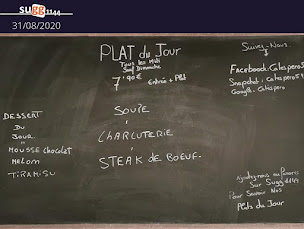 sugg1144
31/08/2020
PLAT du Jour
Tous les Midi
Sauf Dimanche
7,90€
Entrée + Plat
SOUPE
CHARCUTERIE
STEAK de BOEUF
DESSERT
DU
JOUR
MOUSSE Chocolat
TIRAMISU
Suivez-Nous
Facebook:
Snapchat:
Google:
Sur Sugg1144
Pour Savoir Nos
Plats du Jour